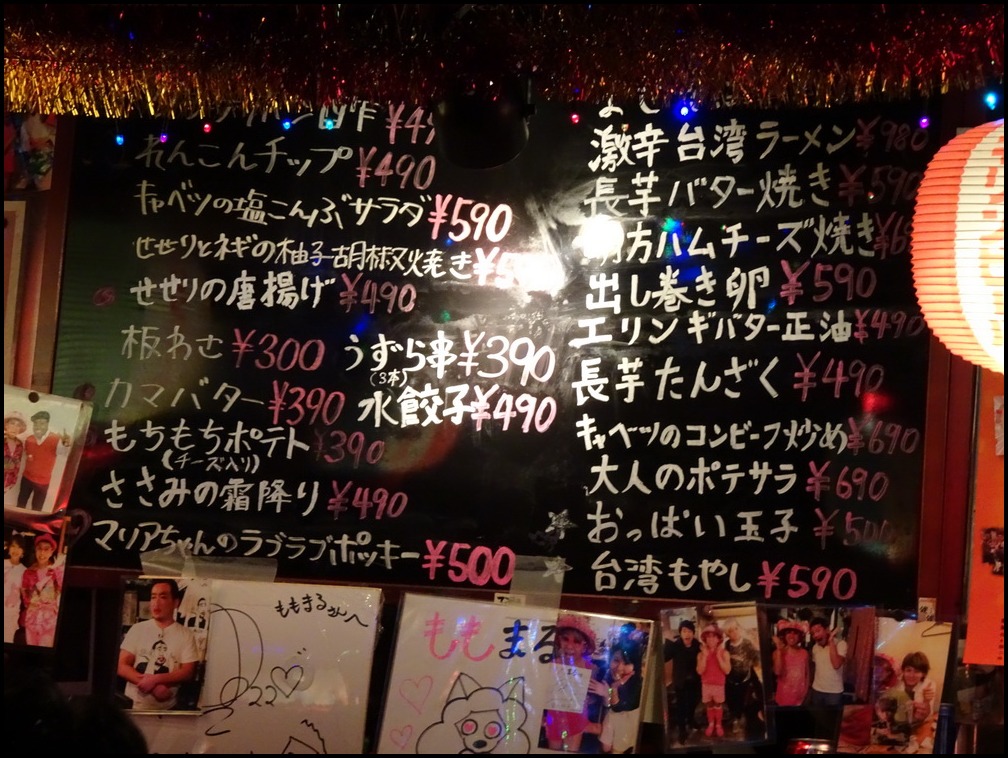 れんこんチップ ¥490
キャベツの塩こんぶサラダ ¥590
せせりとネギの柚子胡椒焼き
せせりの唐揚げ ¥490
板わさ ¥300
うずら串 ¥390
(3本)
カマバター ¥390
水餃子 ¥490
もちもちポテト ¥390
(チーズ入り)
ささみの霜降り ¥490
マリアちゃんのラブラブポッキー ¥500
激辛台湾ラーメン ¥980
長芋バター焼き ¥590
ハムチーズ焼き
出し巻き卵 ¥590
エリンギバター正油 ¥490
長芋たんざく ¥490
キャベツのコンビーフ炒め ¥690
大人のポテサラ ¥690
おっぱい玉子 ¥500
台湾もやし ¥590
ももまるさんへ
ももまる